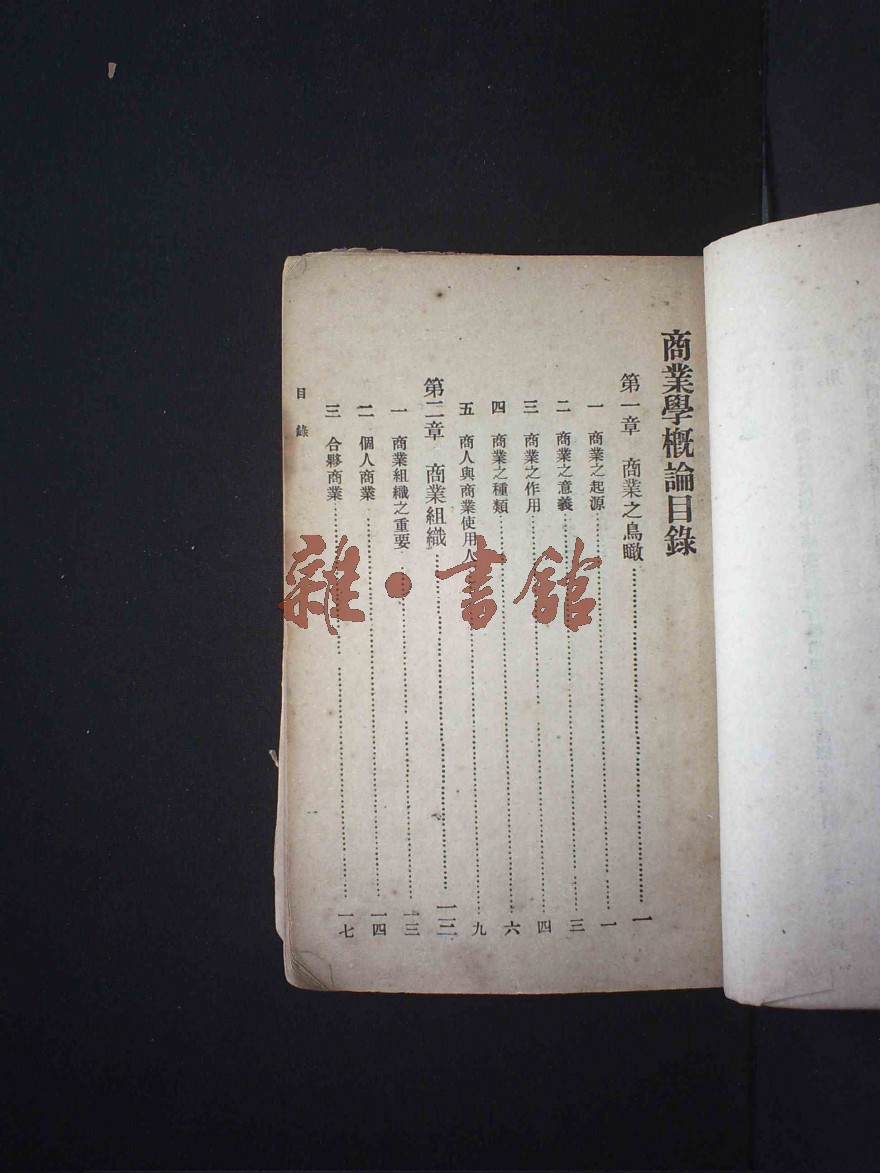 商業學概論目錄
第一章 商業之鳥瞰……一
一 商業之起源……一
二 商業之意義……三
三 商業之作用……四
四 商業之種類……六
五 商人與商業使用人……九
第二章 商業組織……一三
一 商業組織之重要……一三
二 個人商業……一四
三 合夥商業……一七
目錄
一
雜·書館